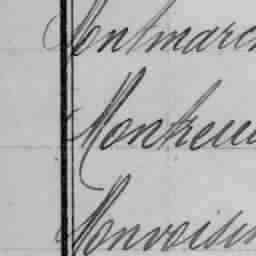 Montmarc
Montreui
Monvoisin